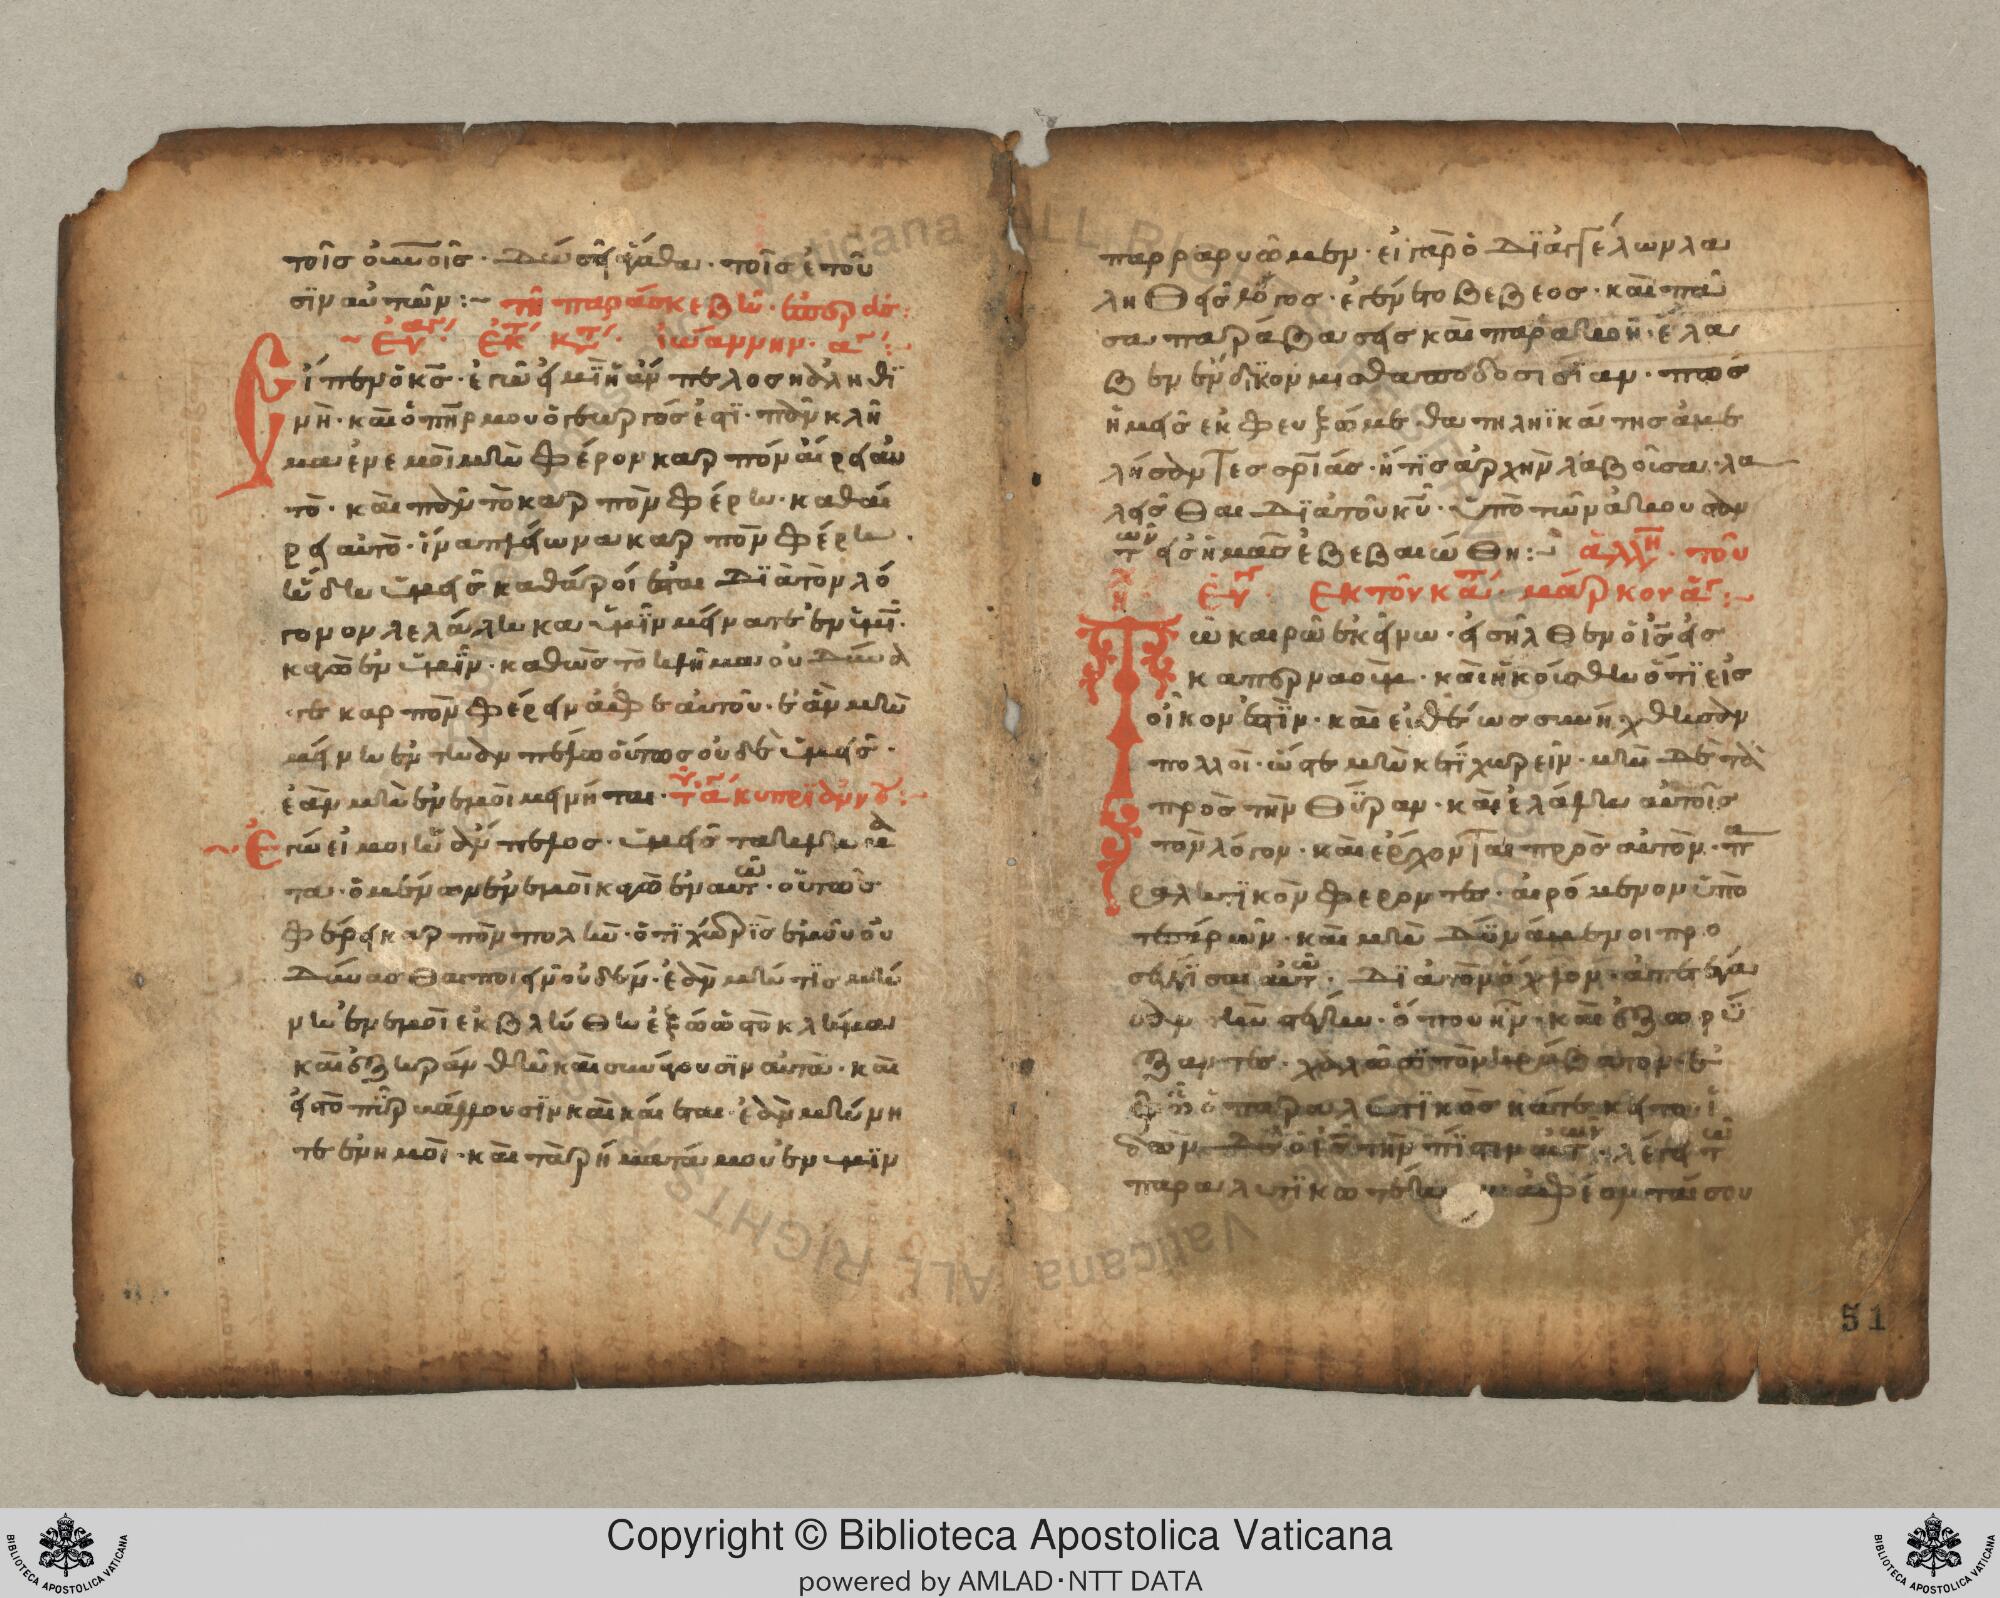 τοῖς οὐνοῖς · δώσει ἀγαθὰ · τοῖς ἐτοῦ
σιν αὐτῶν :~ τῆ παρασκεβὶ
~ Εὐ ἐκ κτ ἰωάννην ·
Εἶπεν ὁ κς · ἐγώ εἰμϊ ἡ ἄμπελος ἡ ἀληθϊ
νὴ · καὶ ὁ πηρ μου ὁ γεωργός ἐστϊ · πὰν κλῆ
μα ἐμε μοὶ μὴ φέρον καρπόν αἴρει αὐ
τὸ · καὶ πὰν τὸ καρπὸν φέρη · καθαί
ρει αὐτὸ · ἵνα πλείωνα καρπὸν φέρη ·
ἤδη ὑμεῖς καθάροί ἐσται διὰ τὸν λό
γον ὃν λελάληκα ὑμῖν μείνατε ἐν ἐμοὶ
κἀγὼ ἐν ὑμῖν · καθὼς τὸ κλῆμα οὐ δύνα
τε καρπὸν φέρειν ἀφ ἑαυτοῦ · ἐὰν μὴ
μείνη ἐν τη ἀμπέλω οὕτως οὐδὲ ὑμεῖς ·
ἐὰν μὴ ἐν ἐμοὶ μείνηται · κυπριανοῦ :~
~ Ἐγώ εἰμοι ἡ ἄμπελος · ὑμεῖς τα κλήμα
τα · ὁ μένων ἐν ἐμοὶ κἀγὼ ἐν αυτῶ · οὕτως
φέρει καρπὸν πολὺν · ὅτι χωρὶς ἐμοῦ οὐ
δύνασθαι ποιεῖν οὐδέν · ἐὰν μή τις μεί
νη ἐν ἐμοὶ ἐκβλήθη ἔξω ὡς τὸ κλήμα
καὶ ἐξηράνθη καὶ συνάγουσϊν αὐτὰ · καὶ
εἰς τὸ πῦρ βάλλουσϊν καὶ καίεται · ἐὰν μείνη
τε ἐν ἠμοὶ · καὶ τὰ ρήματά μου ἐν ὑμῖν
παραρυῶμεν · εἰ γὰρ ὁ δϊ ἀγγέλων λα
ληθεὶς λόγος · ἐγένετο βέβεος · καὶ πᾶ
σα παράβασης καὶ παρακοὴ · ἔλα
βεν ἐνδϊκον μισθαποδοσίαν · πῶς
ἡμεῖς ἐκφευξώμεθα τηληϊκάτης ἀμε
λήσαντες σριάς · ἥτϊς ἀρχὴν λαβοῦσα λα
λεῖσθαι δϊὰ τοῦ κυ · ὑπὸ τῶν ἀκουσάν
των εἰς ἡμᾶς ἐβεβαιώθη :~ ἀλλη · τοῦ
Εὐ · Ἐκ τοῦ κατ · μάρκον ἁγ :~
Τῶ καιρῶ ἐκείνω · εἰσήλθεν ὁ ις εἰς
καπερναοὺμ · καὶ ἠκούσθη ὅτϊ εἰς
οἶκον ἐστϊν · καὶ εὐθέως συνήχθησαν
πολλοὶ · ὥστε μηκέτϊ χωρεῖν · μὴ δὲ τὰ
πρὸς τὴν θύραν · καὶ ἐλάλει αὐτοῖς
τὸν λόγον · καὶ ἔρχονται πρὸς αὐτὸν · πα
ραλυτϊκὸν φεροντες · αἰρόμενον ὑπὸ
τεσάρων · καὶ μὴ δϋνάμενοι προ
σεγγϊσαι αὐτῶ · δϊὰ τὸν ὄχλον · ἀπεστέγα
σαν τὴν στέγην · ὅπου ἦν · καὶ ἐξορύ
ξαντες · χαλῶσϊ τὸν κράβατον ἐ
φ ὧ ὁ παραλυτϊκὸς κατέκειτο · ἰ
δὼν δὲ ὁ ις τὴν πίστιν αὐτῶν · λέγει τῶ
παραλυτϊκω ἀφέονταί σου
51
Copyright © Biblioteca Apostolica Vaticana
powered by AMLAD·NTT DATA